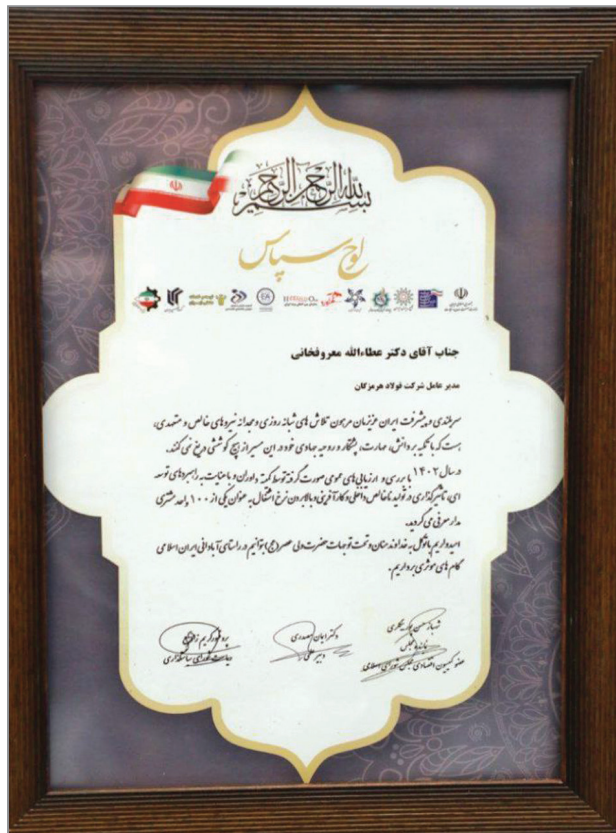 بسم الله الرحمن الرحیم
لوح سپاس
جناب آقای دکتر عطاءالله معروفخانی
مدیر عامل شرکت فولاد هرمزگان
سربلندی و پیشرفت ایران عزیزمان مرهون تلاش های شبانه روزی و مجدانه نیروهای خالص و متعهدی،
هست که با تکیه بر دانش، مهارت، پشتکار و روحیه جهادی خود در این مسیر از هیچ کوششی دریغ نمی کنند.
در سال ۱۴۰۲ با بررسی و ارزیابی های عمومی صورت گرفته توسط کمیته داوران و با عنایت به راهبردهای توسعه
ای، تاثیرگذاری در تولید ناخالص داخلی و کارآفرینی و بالا بردن نرخ اشتغال به عنوان یکی از ۱۰۰ واحد مشتری
مدار معرفی می گردید.
امیدواریم با توکل به خداوند منان و تحت توجهات حضرت ولی عصر (عج) بتوانیم در راستای آبادانی ایران اسلامی
گام های موثری برداریم.
شهباز حسن پور بیگلری
نماینده مجلس
عضو کمیسیون اقتصادی مجلس شورای اسلامی
دکتر ایمان صمدری
دبیر علمی